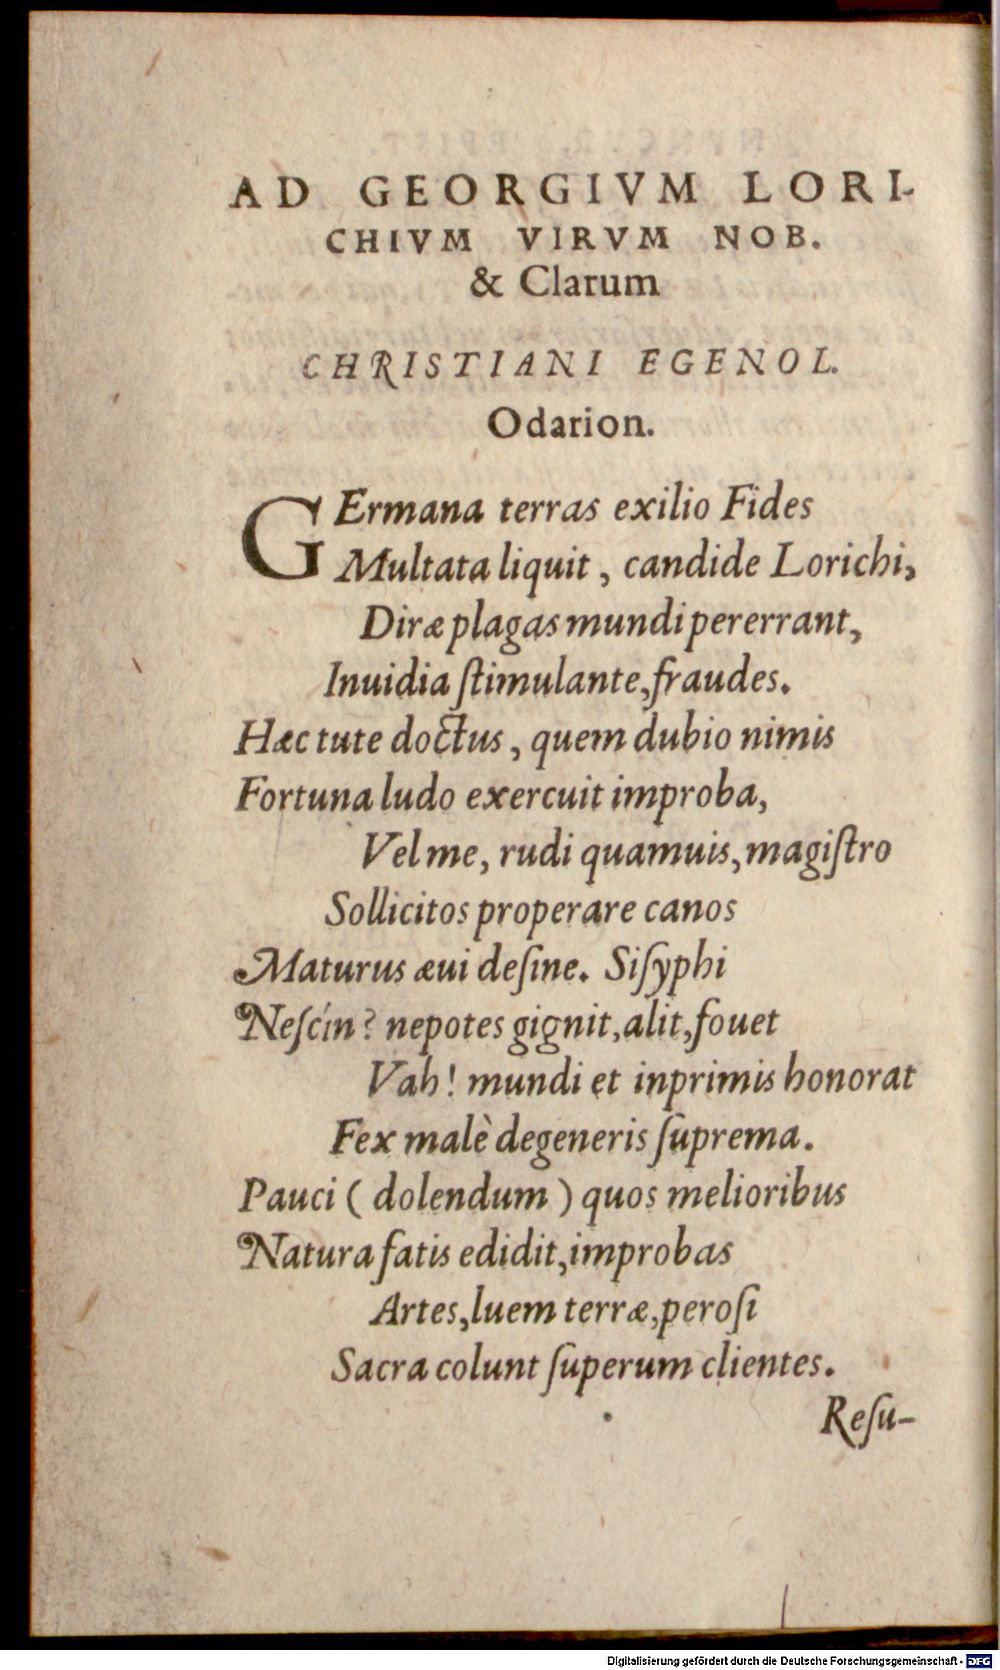 AD GEORGIVM LORI-
CHIVM VIRVM NOB.
& Clarum
CHRISTIANI EGENOL.
Odarion.
GErmana terras exilio Fides
Multata liquit, candide Lorichi,
Diræ plagas mundi pererrant,
Inuidia ſtimulante, fraudes.
Hæc tute doctus, quem dubio nimis
Fortuna ludo exercuit improba,
Vel me, rudi quamuis, magiſtro
Sollicitos properare canos
Maturus æui deſine. Siſyphi
Neſcin? nepotes gignit, alit, fouet
Vah! mundi et inprimis honorat
Fex malè degeneris ſuprema.
Pauci (dolendum) quos melioribus
Natura fatis edidit, improbas
Artes, luem terræ, peroſi
Sacra colunt ſuperum clientes.
Reſu-
Digitalisierung gefördert durch die Deutsche Forschungsgemeinschaft - DFG